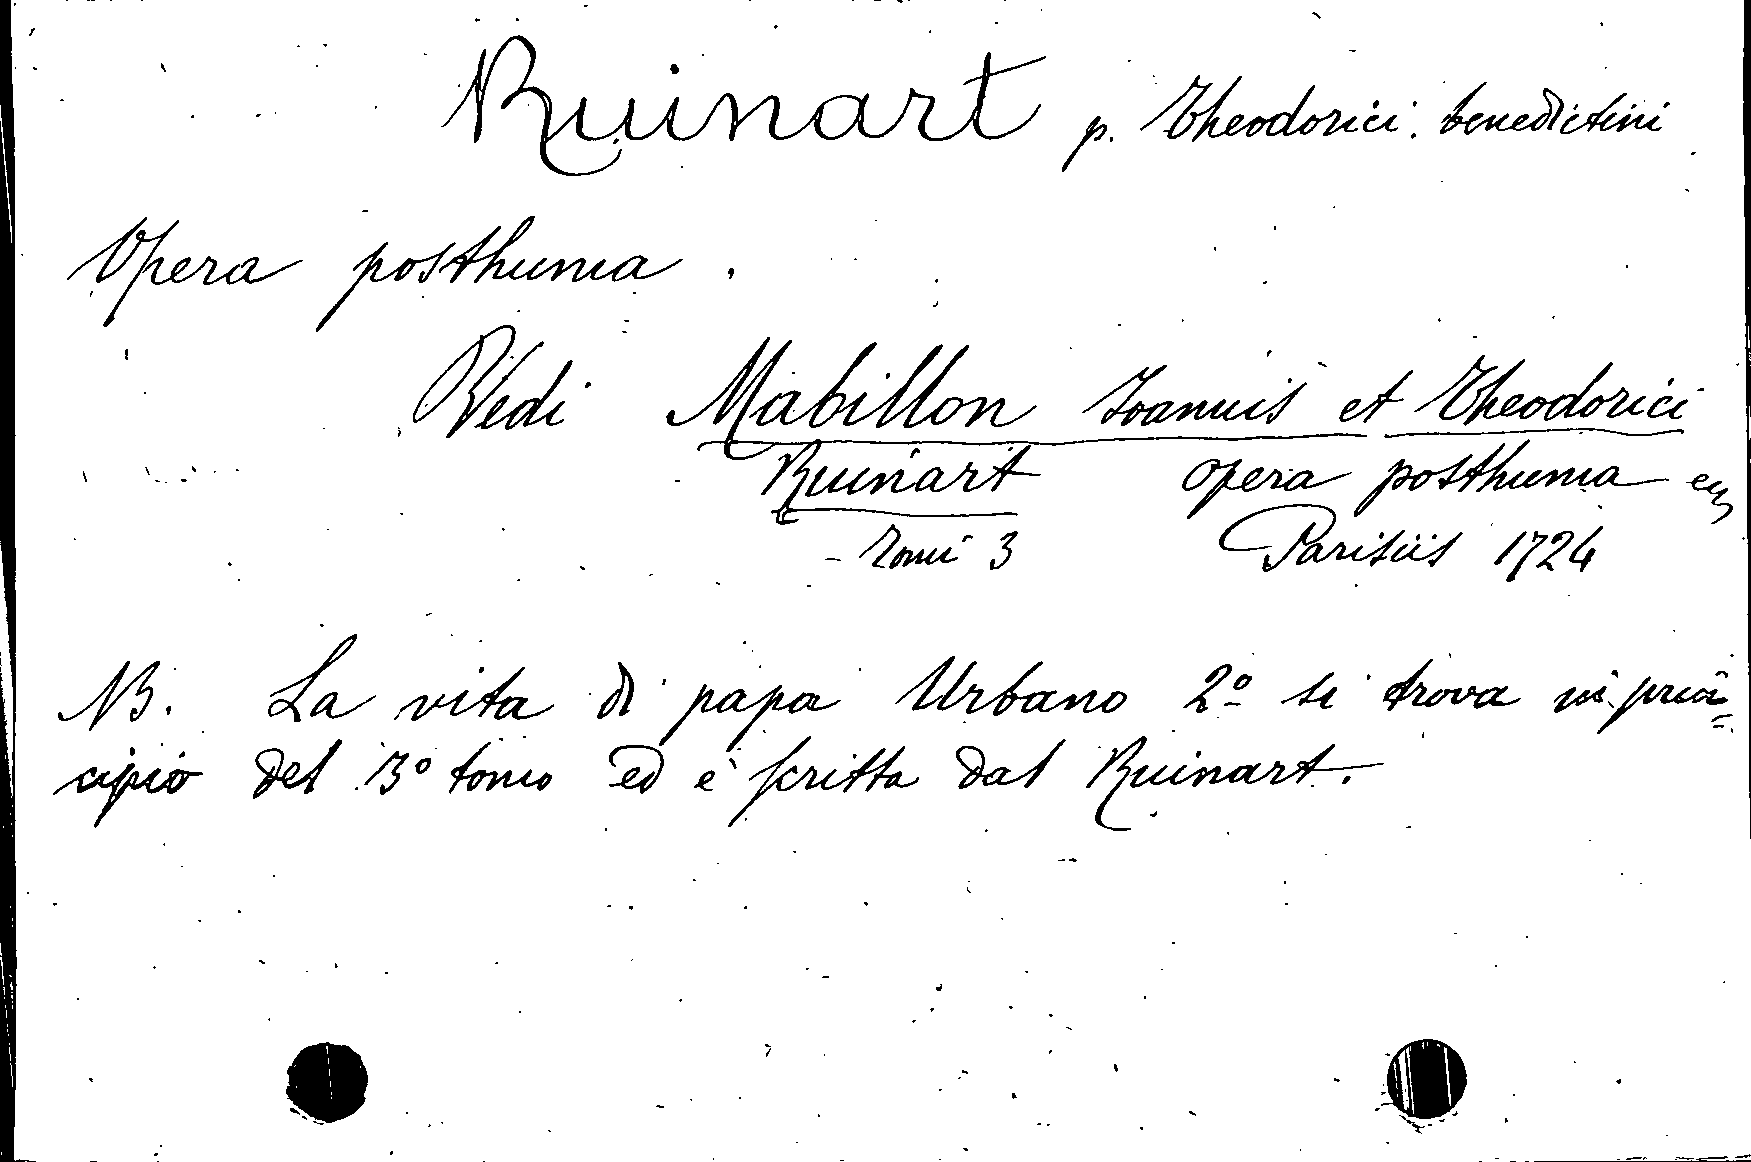 Ruinart p. Theodorici. benedictini
Opera posthuma.
Vedi Mabillon Ioannis et Theodorici
Ruinart opera posthuma
- Tomi 3 Parisiis 1724
NB. La vita di papa Urbano 2º si trova in prin=
cipio del 3º tomo ed è scritta dal Ruinart.